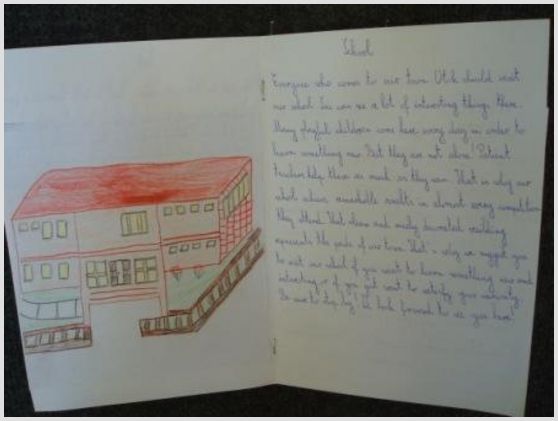 School
Everyone who comes to our town Utik should visit
our school. You can see a lot of interesting things there.
Many playful children come here every day in order to
learn something new. But they are not alone! Patient
teachers help them as much as they can. That is why our
school achieves remarkable results in almost every competition
they attend. That clean and nicely decorated building
represents the pride of our town. That's why we suggest you
to visit our school if you want to learn something new and
interesting or if you just want to satisfy your curiosity.
Be sure to stop by! We look forward to see you here!